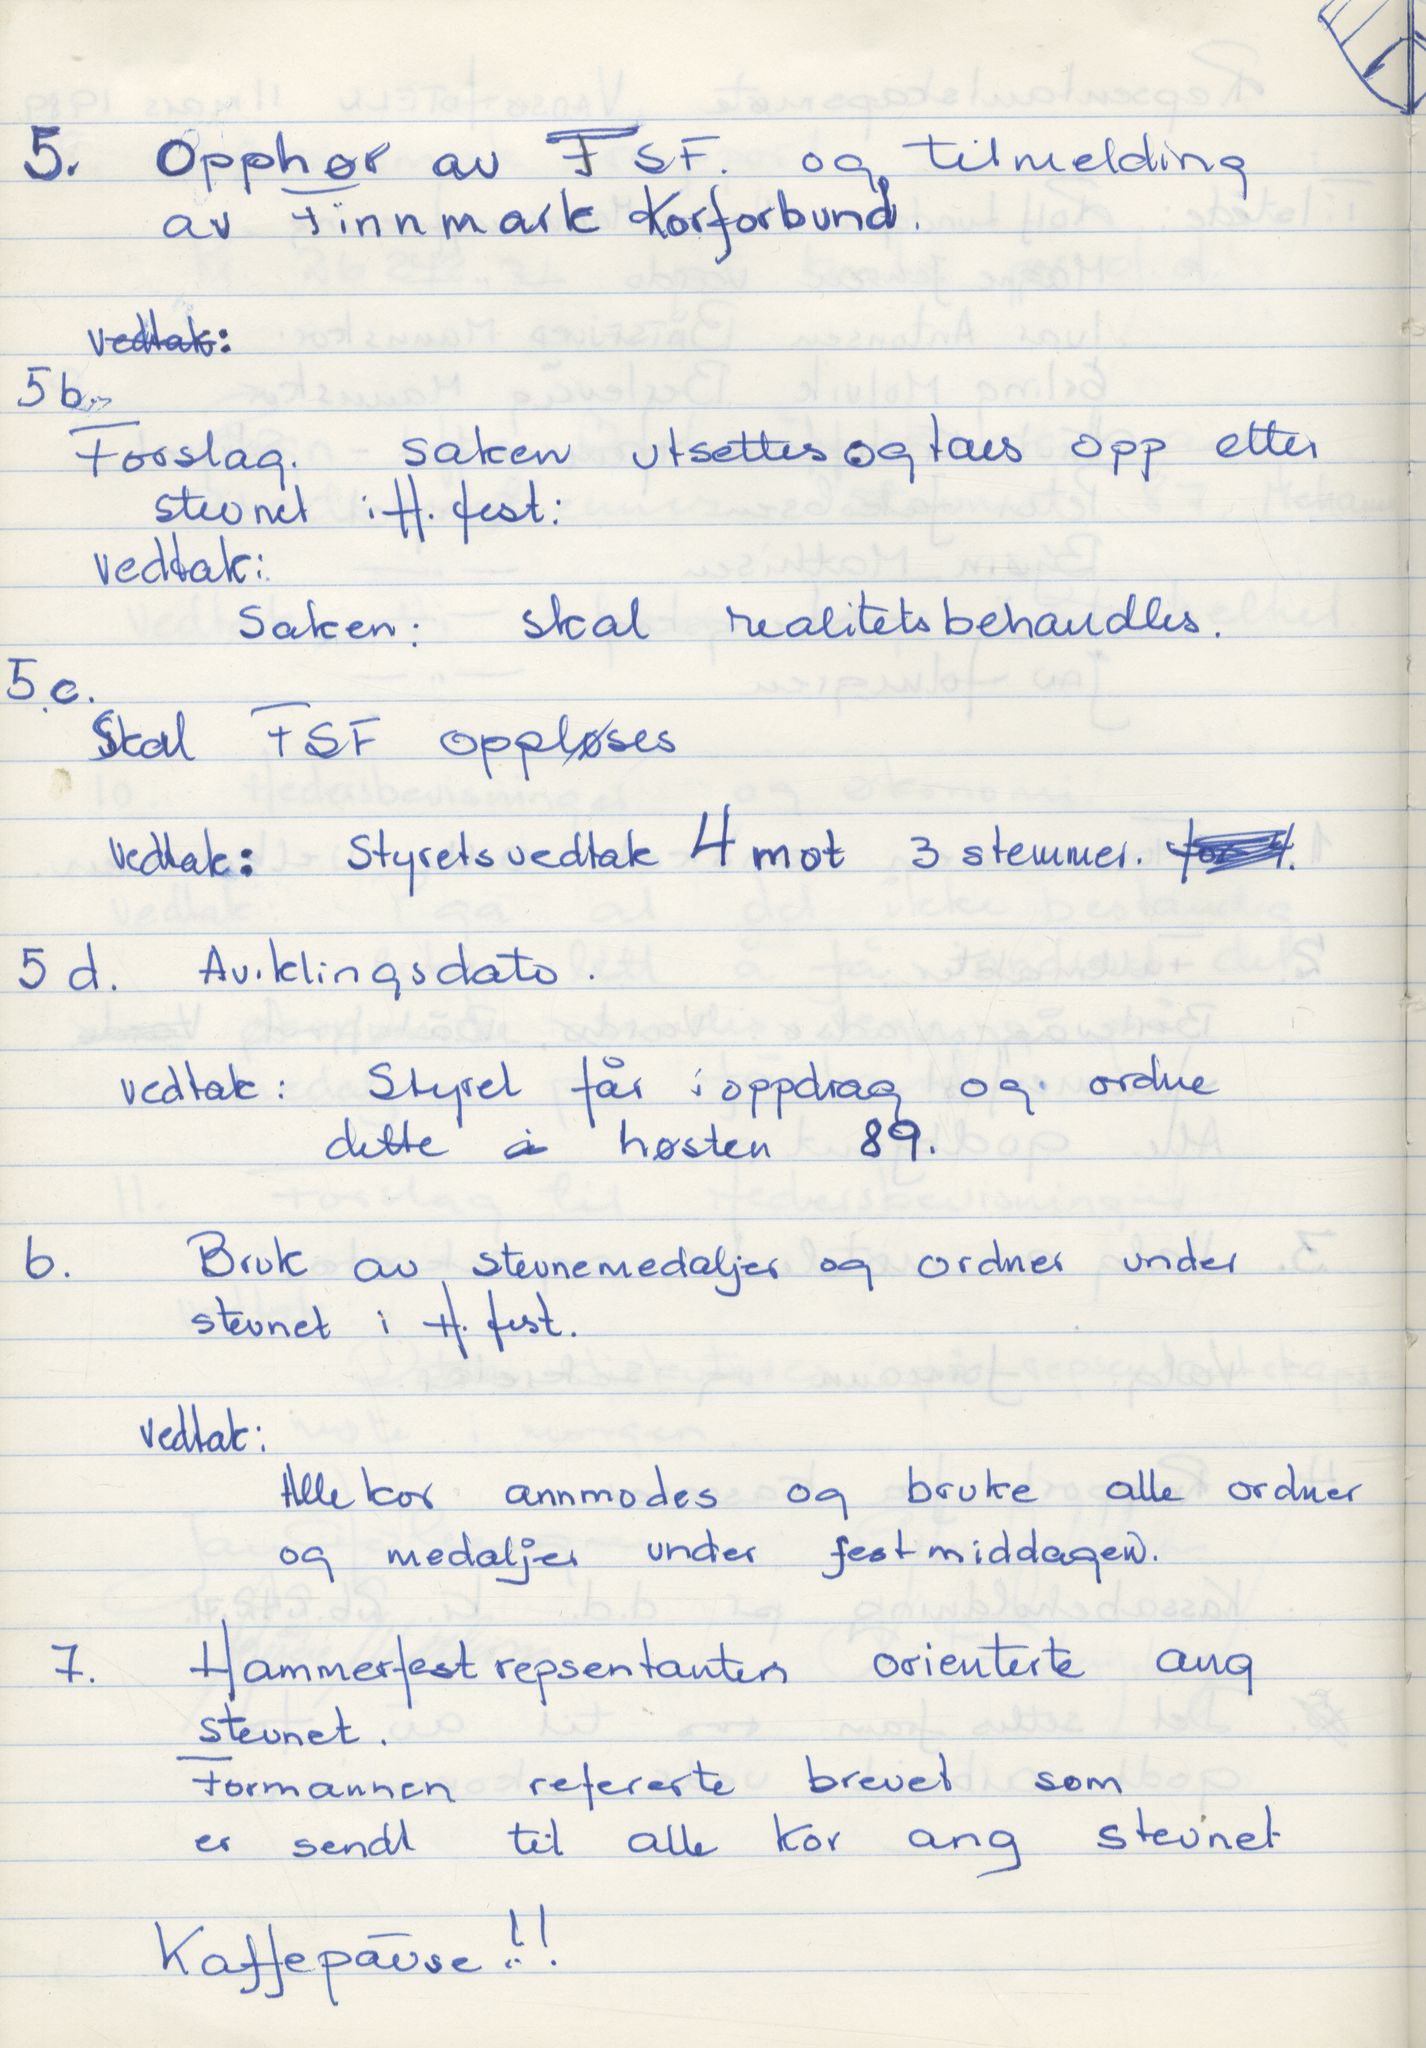 5. Opphør av FSF. og tilmelding
av Finnmark Korforbund.
vedtak:
5b.
Forslag. saken utsettes og taes opp etter
stevnet i H. fest:
vedtak:
Saken: skal realitetsbehandles.
5.c.
Skal FSF oppløses
vedtak: Styrets vedtak 4 mot 3 stemmer.
5d. Aviklingsdato.
vedtak: Styret får i oppdrag og ordne
dette høsten 89.
6. Bruk av stevnemedaljer og ordner under
stevnet i H. fest.
vedtak:
Alle kor annmodes og bruke alle ordner
og medaljer under festmiddagen.
7. Hammerfest repsentanten orienterte ang
stevnet.
Formannen refererte brevet som
er sendt til alle kor ang stevnet
Kaffepause!!!